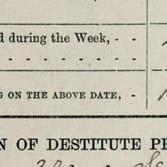 d during the Week, - -
G ON THE ABOVE DATE, -
N OF DESTITUTE P